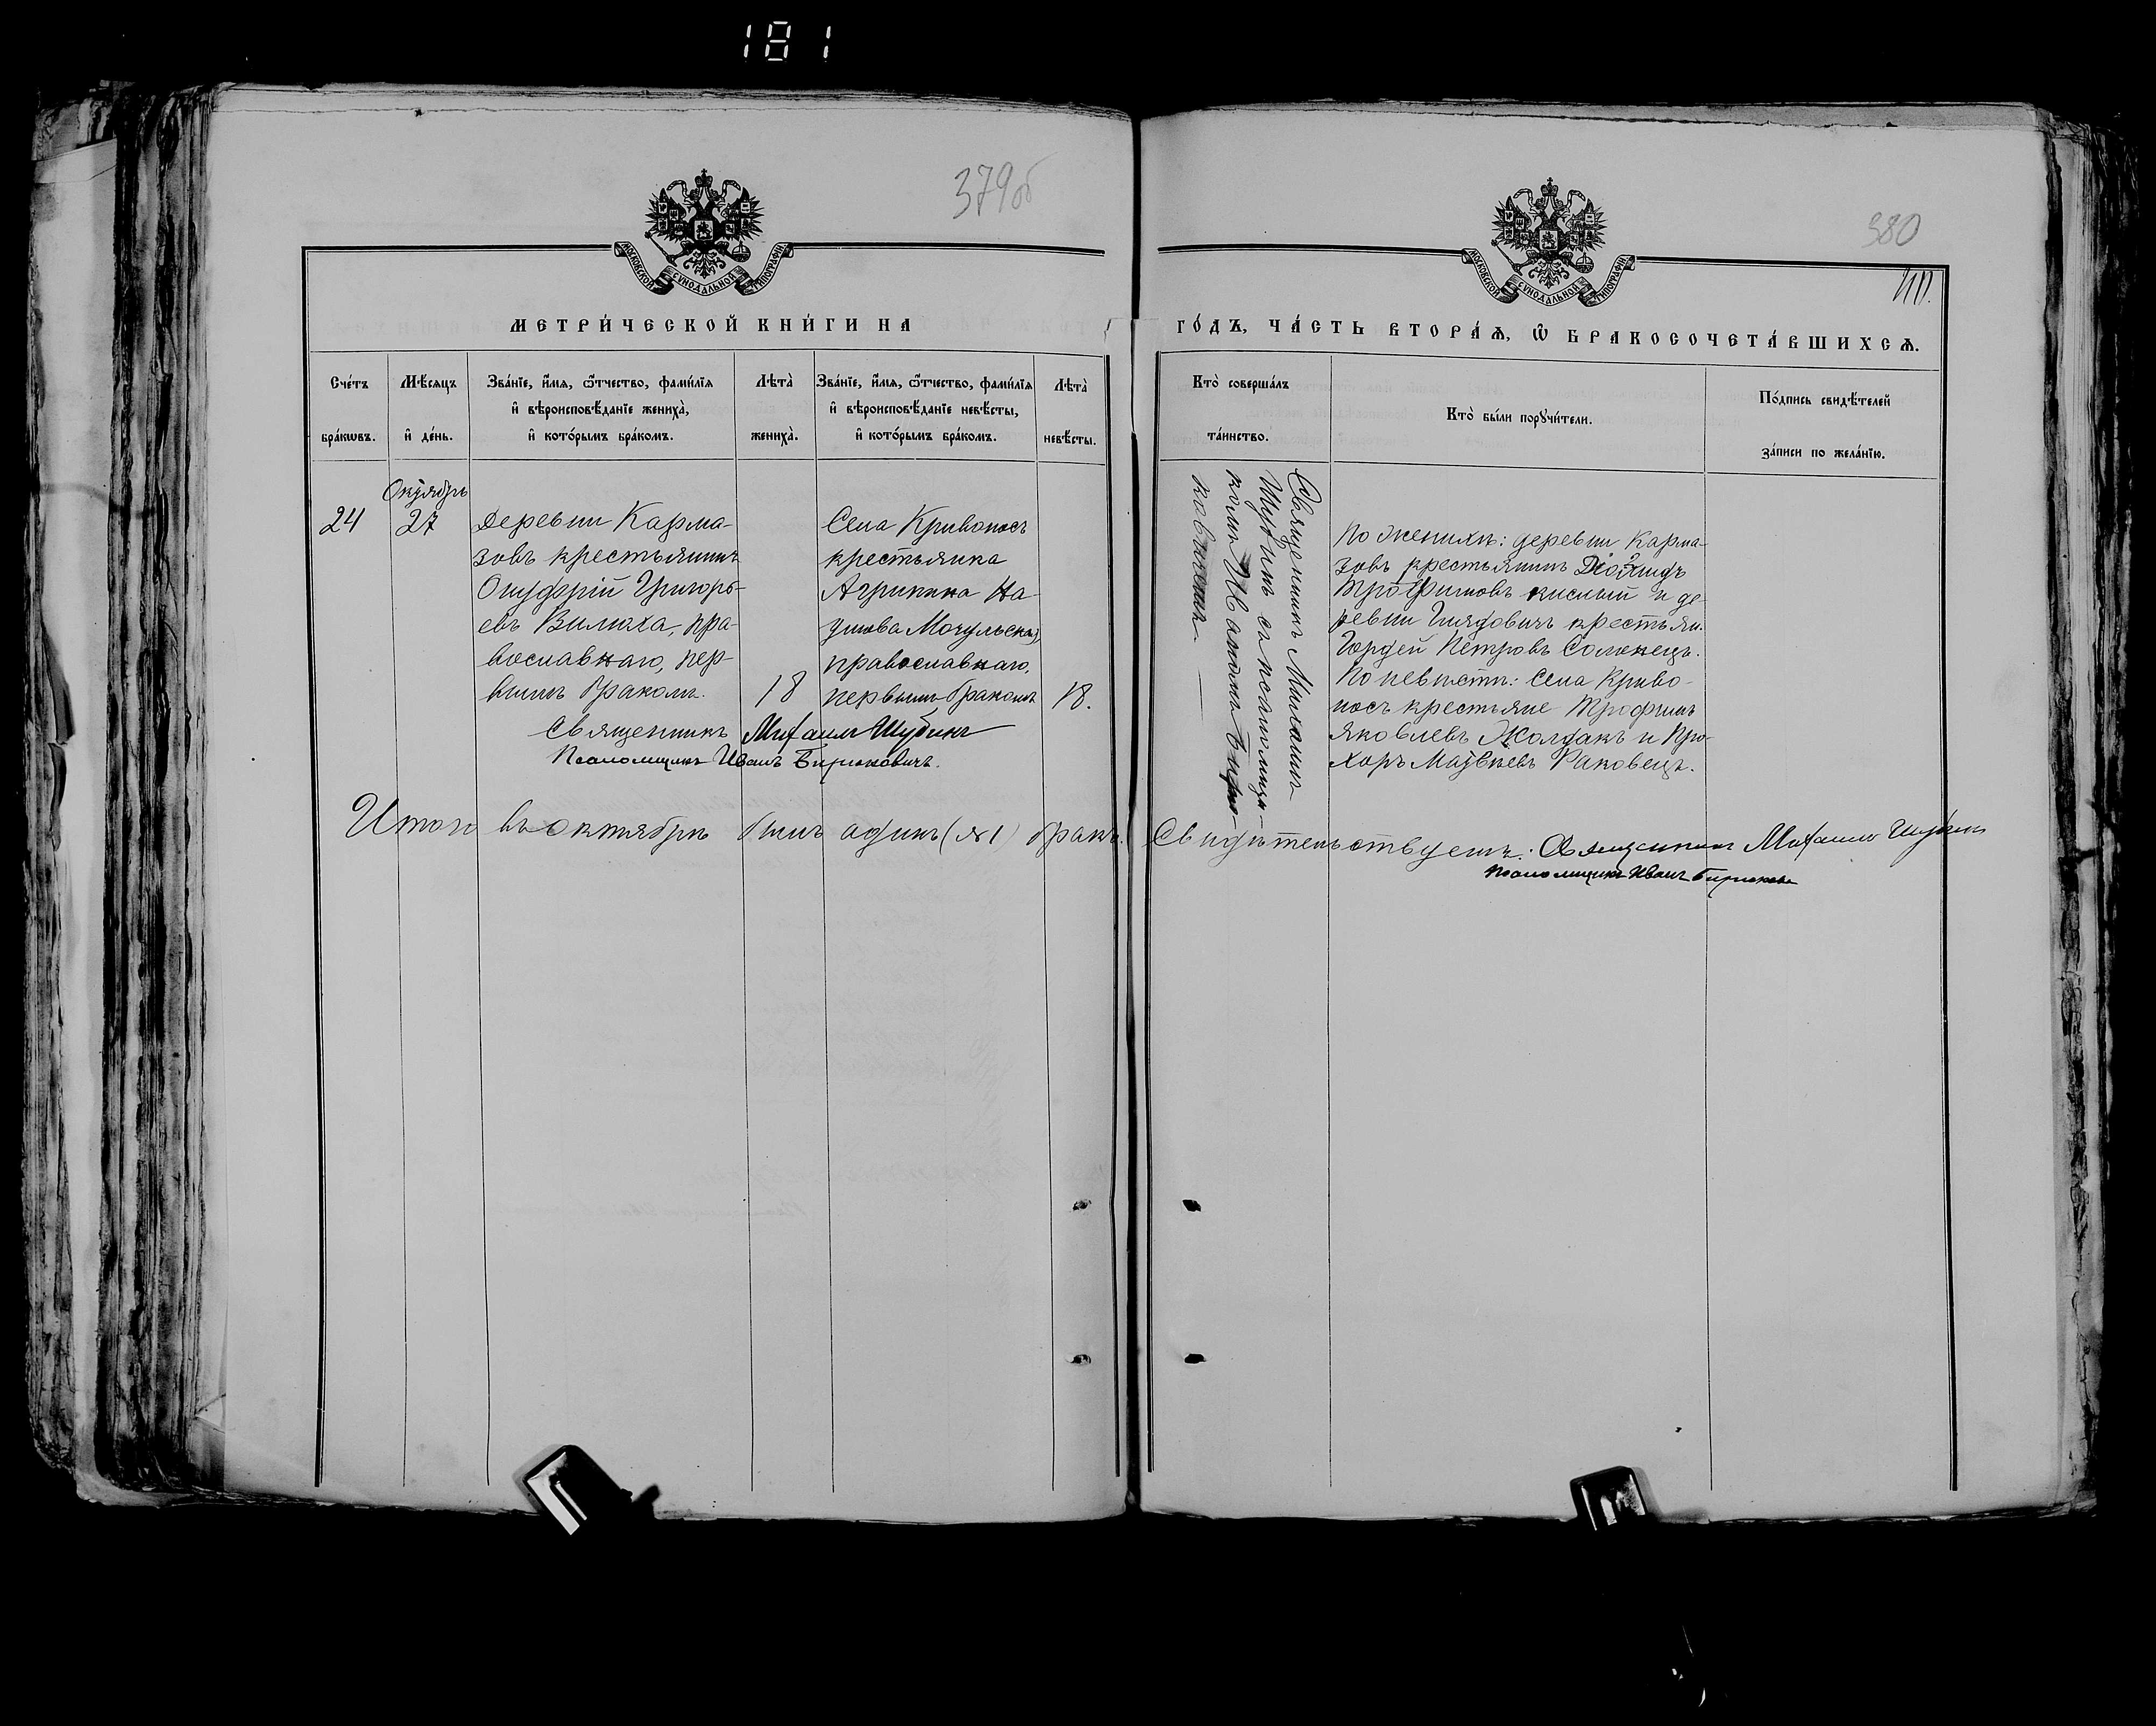 181
379об
380
МОСКОВСКОЙ СУНОДАЛЬНОЙ ТИПОГРАФІИ
МОСКОВСКОЙ СУНОДАЛЬНОЙ ТИПОГРАФІИ
МЕТРИ́ЧЕСКОЙ КНИ́ГИ НА
ГО́ДЪ, ЧА́СТЬ ВТОРА́Ѧ, Ѽ БРАКОСОЧЕТА́ВШИХСѦ.
Сче́тъ бра́кѡвъ.
Мѣ́сяцъ и҆ де́нь.
Зва́нїе, и҆́мя, ѻ҆́тчество, фамѝлїя
и҆ вѣроисповѣ́данїе жениха̀,
и҆ кото́рымъ бра́комъ.
Лѣта̀ жениха̀.
Зва́нїе, и҆́мя, ѻ҆́тчество, фамѝлїя
и҆ вѣроисповѣ́данїе невѣ́сты,
и҆ кото́рымъ бра́комъ.
Лѣта̀ невѣ́сты.
Кто̀ соверша́лъ
та́инство.
Кто̀ бы́ли порꙋчи́тели.
По́дпись свидѣ́телей
за́писи по жела́нїю.
24
Октябрь
27
Деревни Карма-
зовъ крестьянинъ
Онуфрій Григорь-
евъ Вилюха, пра-
вославнаго, пер-
вымъ бракомъ.
18
Села Кривоносъ
крестьянка
Агрипина На-
умова Мочульская,
православнаго,
первымъ бракомъ
18.
Священникъ Михаилъ Шубинъ
Псаломщикъ Иванъ Бирюковичъ.
Священникъ Михаилъ
Шубинъ съ псаломщи-
комъ Иваномъ Бирю-
ковичемъ
По женихѣ: деревни Карма-
зовъ крестьянинъ
Трофимовъ Кислый и де-
ревни Гнядовичъ крестьян.
Гордей Петровъ Солонецъ.
По невѣстѣ: Села Криво-
носъ крестьяне Трофимъ
Яковлевъ Жолдакъ и Про-
хоръ Матвѣевъ Раковецъ.
Итого въ октябрѣ былъ одинъ (№1) бракъ. Свидѣтельствуемъ: Священникъ Михаилъ Шубинъ
Псаломщикъ Иванъ Бирюкови